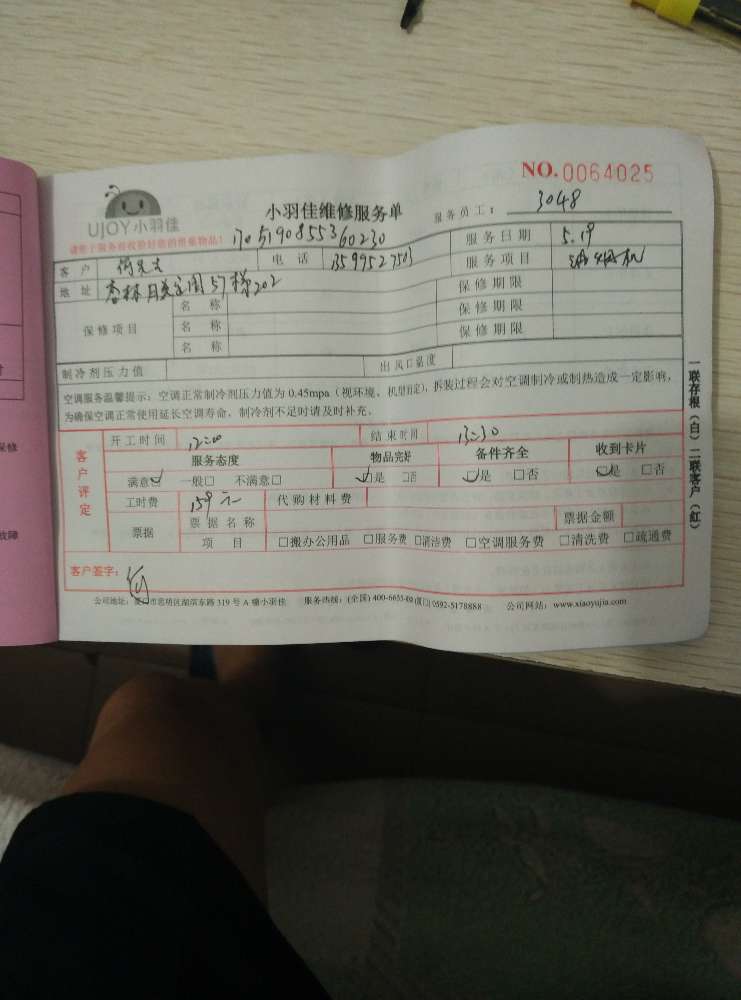 NO.0064025
UJOY小羽佳
小羽佳维修服务单
服务员工： 3048
请您于服务前收拾好您的贵重物品！
1705190855360230
客 户 何先生 电 话 服务日期 5.19
服务项目
地 址 杏林月美定国57梯202 保修期限
保修项目
名 称 保修期限
名 称 保修期限
名 称
制冷剂压力值 出风口温度
空调服务温馨提示：空调正常制冷剂压力值为 0.45mpa（视环境、机型而定），拆装过程会对空调制冷或制热造成一定影响，
为确保空调正常使用延长空调寿命，制冷剂不足时请及时补充。
客户评定
开工时间 12:00 结束时间 13:30
服务态度 物品完好 备件齐全 收到卡片
满意☑ 一般□ 不满意□ ☑是 □否 ☑是 □否 ☑是 □否
工时费 159元 代购材料费
票据 票据名称 票据金额
项 目 □搬办公用品 □服务费 □清洁费 □空调服务费 □清洗费 □疏通费
客户签字： 何
公司地址：厦门市思明区湖滨东路 319 号 A 幢小羽佳 服务热线：(全国) 400-6655-(厦门) 0592-5178888 公司网站：www.xiaoyujia.com
一联存根（白）二联客户（红）